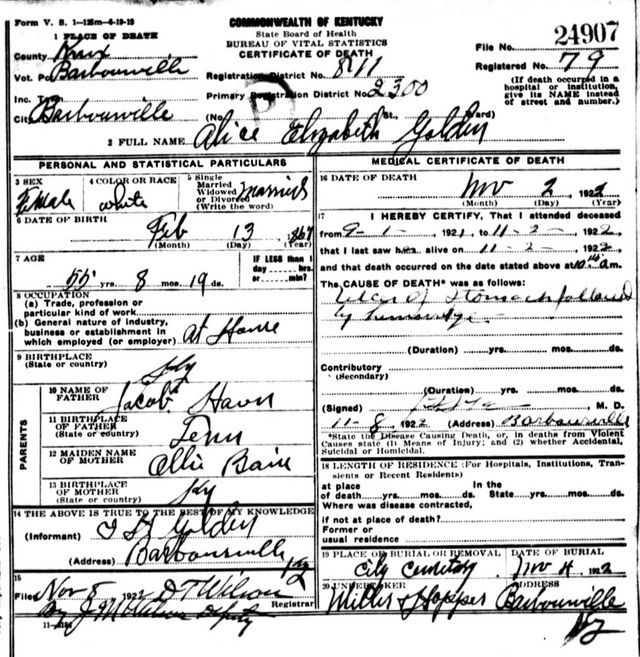 Form V. S. 1—125m—6-19-19
COMMONWEALTH OF KENTUCKY
State Board of Health
BUREAU OF VITAL STATISTICS
CERTIFICATE OF DEATH
File No. 24907
Registered No. 79
(If death occurred in a hospital or institution, give its NAME instead of street and number.)
1 PLACE OF DEATH
County Knox
Vot. Barbourville
Registration District No. 811
Inc. To
Primary Registration District No. 2300
City Barbourville (No. St., Ward)
2 FULL NAME Alice Elizabeth Golden
PERSONAL AND STATISTICAL PARTICULARS
3 SEX Female
4 COLOR OR RACE White
5 Single Married Widowed or Divorced (Write the word) Married
6 DATE OF BIRTH
Feb 13 1867
(Month) (Day) (Year)
7 AGE
55 yrs. 8 mos. 19 ds.
IF LESS than 1 day ........hrs. or........min.?
8 OCCUPATION
(a) Trade, profession or particular kind of work
(b) General nature of industry, business or establishment in which employed (or employer) at Home
9 BIRTHPLACE
(State or country) Ky
PARENTS
10 NAME OF FATHER Jacob
11 BIRTHPLACE OF FATHER
(State or country) Tenn
12 MAIDEN NAME OF MOTHER Ollie
13 BIRTHPLACE OF MOTHER
(State or country) Ky
14 THE ABOVE IS TRUE TO THE BEST OF MY KNOWLEDGE
(Informant) Golden
(Address) Barboursville Ky
15
Filed Nov 8 1922 D T Wilson
Registrar
By J M Wilson Deputy
MEDICAL CERTIFICATE OF DEATH
16 DATE OF DEATH
Nov 2 1922
(Month) (Day) (Year)
17 I HEREBY CERTIFY, That I attended deceased
from 9-1-, 1921, to 11-2-, 1922,
that I last saw her alive on 11-2-, 1922,
and that death occurred on the date stated above at 10 am.
The CAUSE OF DEATH* was as follows:
Ulcer of Stomach followed
by
(Duration) ........yrs. ........mos. ........ds.
Contributory
(Secondary)
(Duration) ........yrs. ........mos. ........ds.
(Signed) M. D.
11-8, 1922 (Address) Barbourville
*State the Disease Causing Death, or, in deaths from Violent Causes state (1) Means of Injury; and (2) whether Accidental, Suicidal or Homicidal.
18 LENGTH OF RESIDENCE (For Hospitals, Institutions, Transients or Recent Residents)
at place of death........yrs........mos........ds.
In the State........yrs........mos........ds.
Where was disease contracted, if not at place of death?
Former or usual residence
19 PLACE OF BURIAL OR REMOVAL City Cemetery
DATE OF BURIAL Nov 4, 1922
20 UNDERTAKER Miller & Hopper
ADDRESS Barbourville Ky